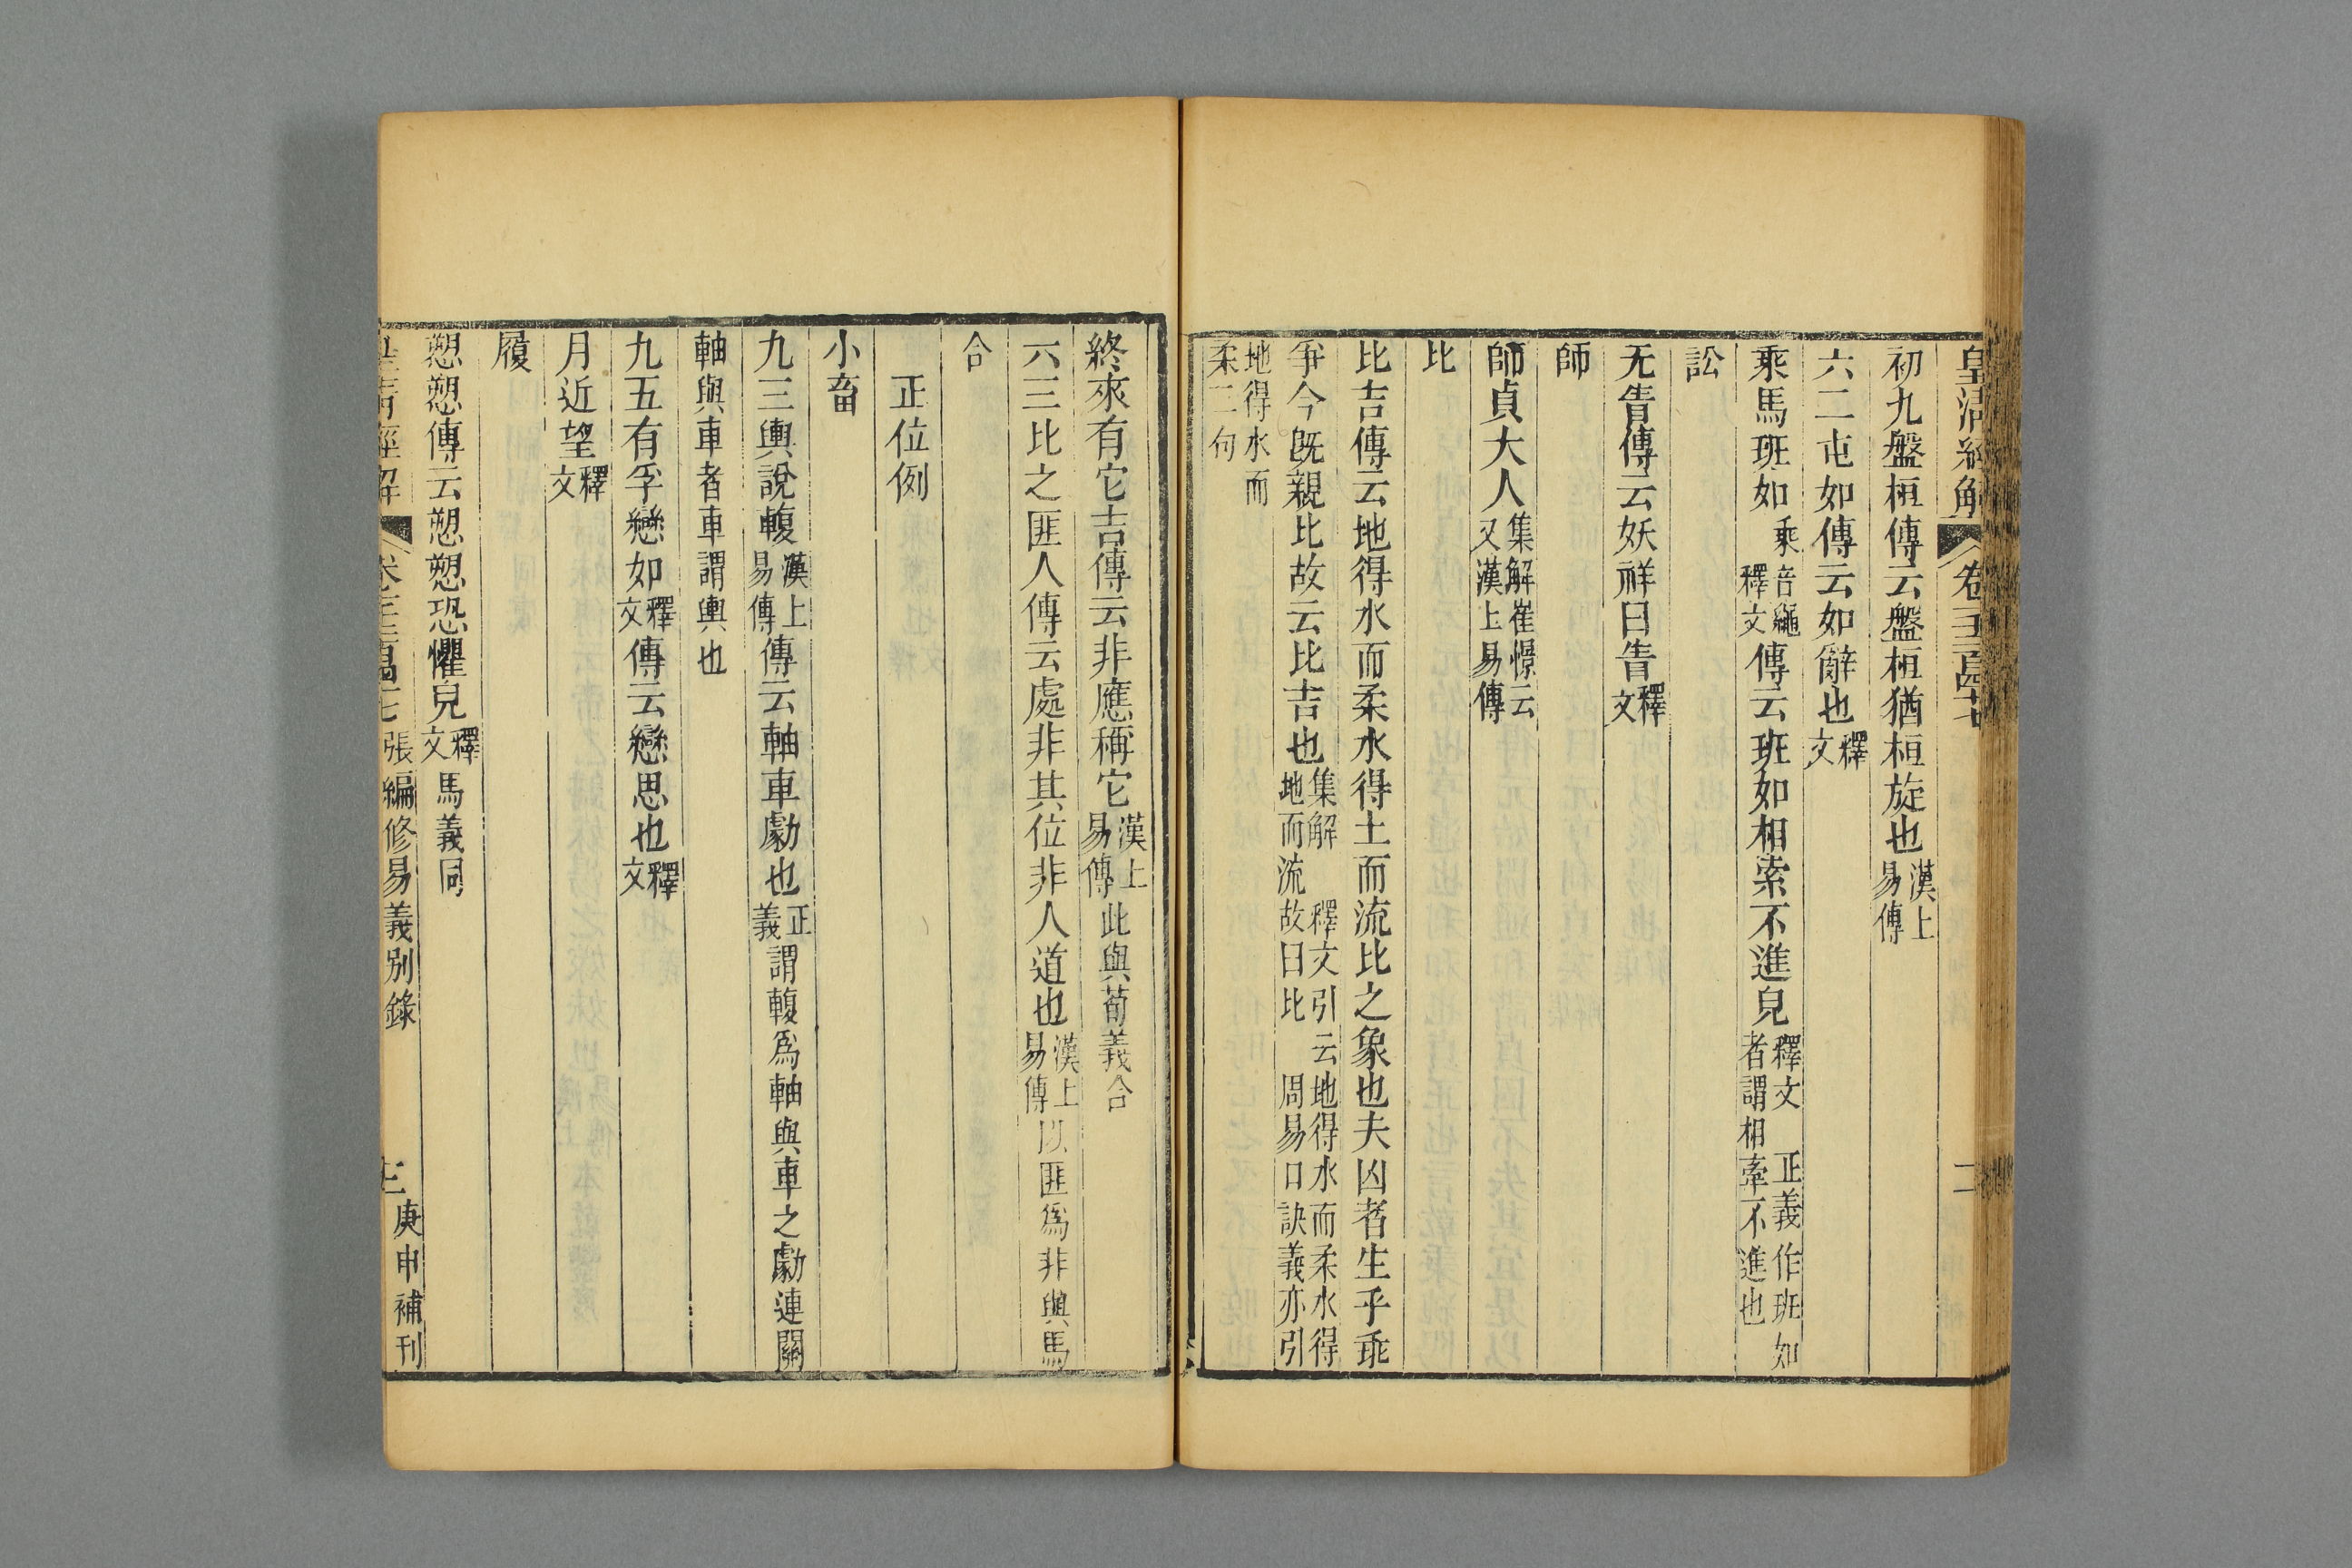 皇清經解 卷一千二百四十七 二
初九盤桓傳云盤桓猶桓旋也漢上易傳
六二屯如傳云如辭也釋文
乘馬班如乘音繩釋文傳云班如相索不進皃釋文 正義作班如者謂相牽不進也
訟
无眚傳云妖祥曰眚釋文
師
師貞大人集解崔憬云又漢上易傳
比
比吉傳云地得水而柔水得土而流比之象也夫凶者生乎乖
爭今旣親比故云比吉也集解 釋文引云地得水而柔水得地而流故曰比 周易口訣義亦引
地得水而柔二句
終來有它吉傳云非應稱它漢上易傳此與荀義合
六三比之匪人傳云處非其位非人道也漢上易傳以匪爲非與馬
合
正位例
小畜
九三輿說輹漢上易傳傳云軸車劇也正義謂輹爲軸與車之劇連關
軸與車者車謂輿也
九五有孚戀如釋文傳云戀思也釋文
月近望釋文
履
愬愬傳云愬愬恐懼皃釋文馬義同
皇清經解 張編修易義別錄 庚申補刊